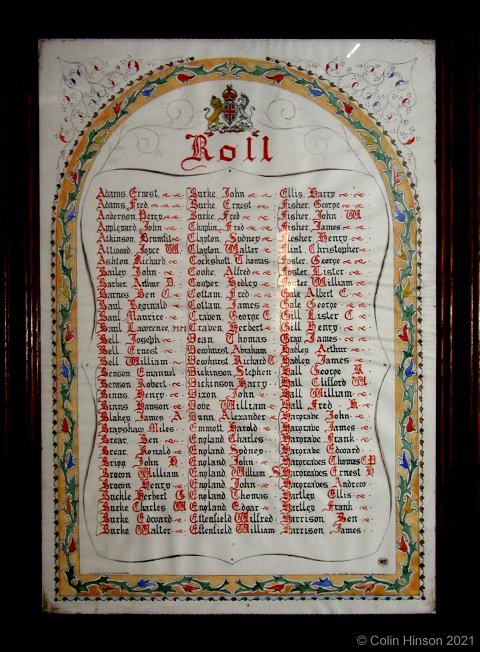 Roll
Adams Ernest
Adams Fred
Anderson Percy
Appleyard John
Atkinson Brumfit
Attwood Joyce W.
Ashton Richard
Bailey John
Barber Arthur D.
Barnes Ben C.
Baul Reginald
Baul Maurice
Baul Lawrence
Bell Joseph
Bell Ernest
Bell William
Benson Emanuel
Benson Robert
Binns Henry
Binns Hanson
Blakey James A
Brayshaw Miles
Brear Ben
Brear Ronald
Brigg John H
Brown William
Brown Henry
Buckle Herbert G
Burke Charles W
Burke Edward
Burke Walter
Burke John
Burke Ernest
Burke Fred
Chaplin Fred
Clayton Sydney
Clayton Walter
Cockshott Thomas
Cooke Alfred
Cooper Hedley
Cottam Fred
Cottam James
Craven George E
Craven Herbert
Dean Thomas
Dewhurst Abraham
Dewhurst Richard T
Dickinson Stephen
Dickinson Harry
Dixon John
Dove William
Dunn Alexander
Emmott Harold
England Charles
England Sydney
England John
England William S
England John
England Thomas
England Edgar
Estenfield Wilfred
Estenfield William
Ellis Harry
Fisher George
Fisher John W.
Fisher James
Flesher Henry
Flint Christopher
Foster George
Foster Lister
Foster William
Gale Albert E
Gale George
Gill Lister C
Gill Henry
Gray James
Hadley Arthur
Hadley James
Hall George R
Hall Clifford W
Hall William
Hall Fred R
Hargrave John
Hargrave James
Hargrave Frank
Hargrave Edward
Hargreaves Thomas E.P
Hargreaves Ernest H
Hargreaves Andrew
Hartley Ellis
Hartley Frank
Harrison Ben
Harrison James
© Colin Hinson 2021